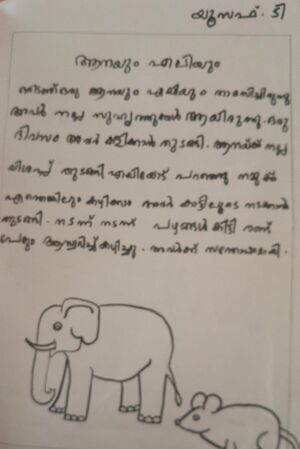 യൂസഫ്. ടി
ആനയും എലിയും
ഒരിടത്ത് ഒരു ആനയും എലിയും താമസിച്ചിരുന്നു
അവർ നല്ല സുഹൃത്തുക്കൾ ആയിരുന്നു. ഒരു
ദിവസം അവർ കളിക്കാൻ തുടങ്ങി. ആനയ്ക്ക് നല്ല
വിശപ്പ് തുടങ്ങി എലിയോട് പറഞ്ഞു നമുക്ക്
എന്തെങ്കിലും കഴിക്കാം അവർ കാട്ടിലൂടെ നടക്കാൻ
തുടങ്ങി. നടന്ന് നടന്ന് പഴങ്ങൾ കിട്ടി രണ്ട്
പേരും ആസ്വദിച്ച് കഴിച്ചു. അവർക്ക് സന്തോഷമായി.